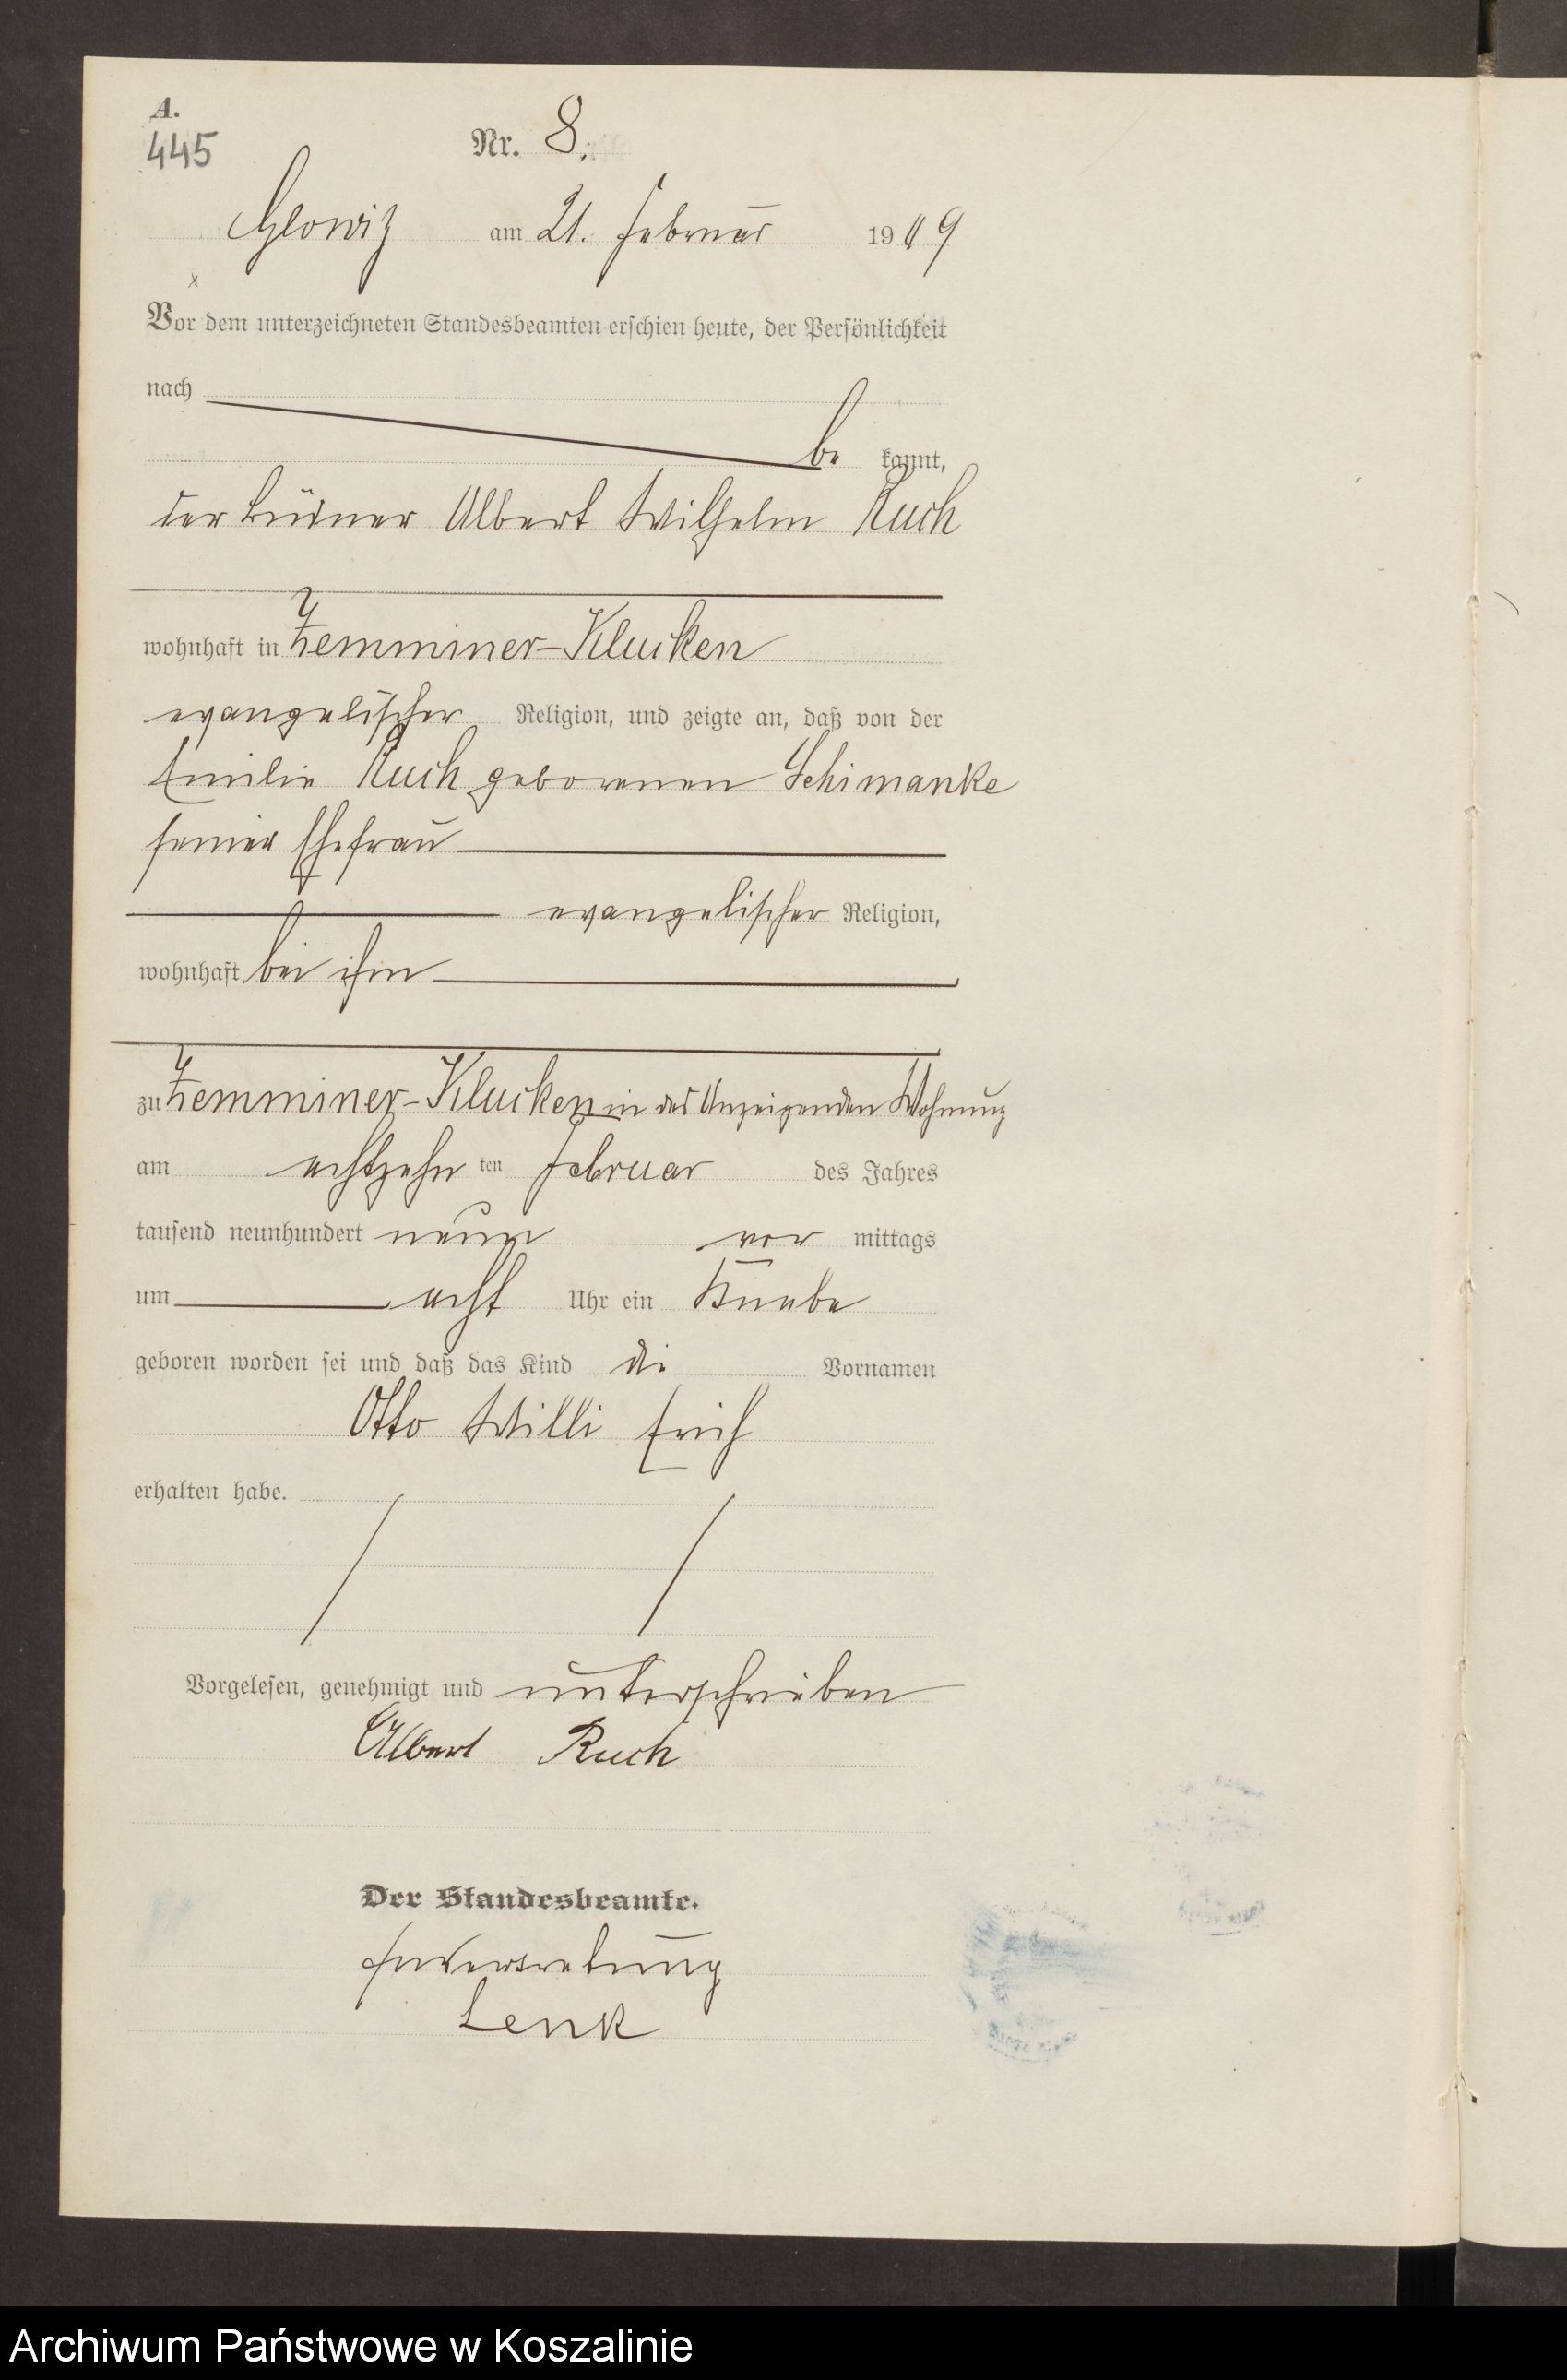 A.
445
Nr. 8.
Glowitz am 21. Februar 1909
Vor dem unterzeichneten Standesbeamten erschien heute, der Persönlichkeit
nach
be kannt,
der Büdner Albert Wilhelm Ruch
wohnhaft in Zemminer-Klucken
evangelischer Religion, und zeigte an, daß von der
Emilie Ruch geborenen Schimanke
seiner Ehefrau
evangelischer Religion,
wohnhaft bei ihm
zu Zemminer-Klucken in des Anzeigenden Wohnung
am achtzehn ten Februar des Jahres
tausend neunhundert neun vor mittags
um acht Uhr ein Knabe
geboren worden sei und daß das Kind die Vornamen
Otto Willi Erich
erhalten habe.
Vorgelesen, genehmigt und unterschrieben
Albert Ruch
Der Standesbeamte.
In Vertretung
Lenk
Archiwum Państwowe w Koszalinie